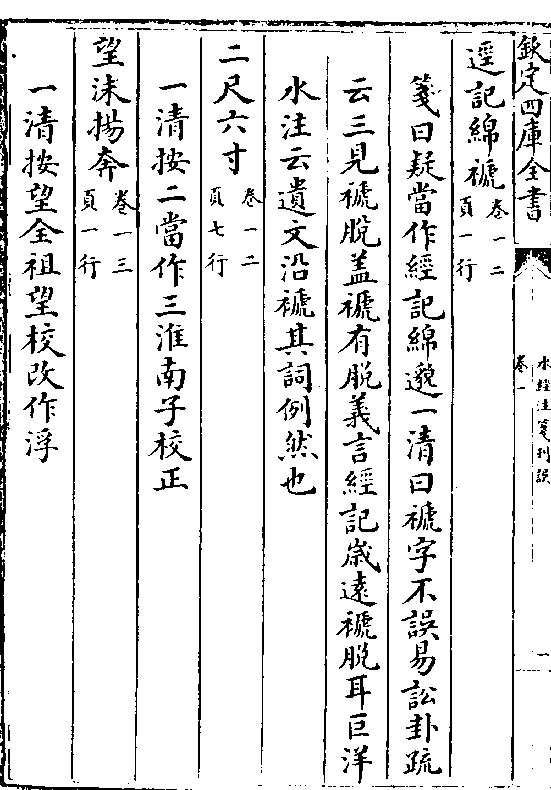 欽定四庫全書
水經注箋刊誤
卷一
一
逕記綿褫卷一二頁一行
箋曰疑當作經記綿邈一清曰褫字不誤易訟卦疏
云三見褫脫盖褫有脫義言經記歲遠褫脫耳巨洋
水注云遺文沿褫其詞例然也
二尺六寸卷一二頁七行
一清按二當作三淮南子校正
望沫揚奔卷一三頁一行
一清按望全祖望校改作浮